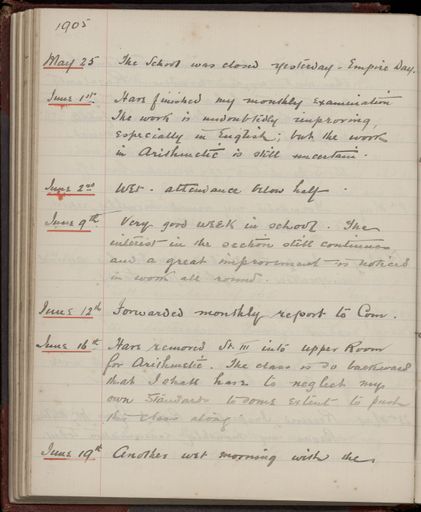 1905
May 25 The School was closed yesterday - Empire Day.
June 1st. Have finished my monthly examination
The work is undoubtedly improving,
especially in English; but the work
in Arithmetic is still uncertain.
June 2nd Wet. attendance below half.
June 9th Very good week in school. The
interest in the section still continues
and a great improvement is noticed
in work all round.
June 12th Forwarded monthly report to Com.
June 16th Have removed St. III into upper Room
for Arithmetic. The class is so backward
that I shall have to neglect my
own Standards to some extent to push
this class along.
June 19th Another wet morning with the